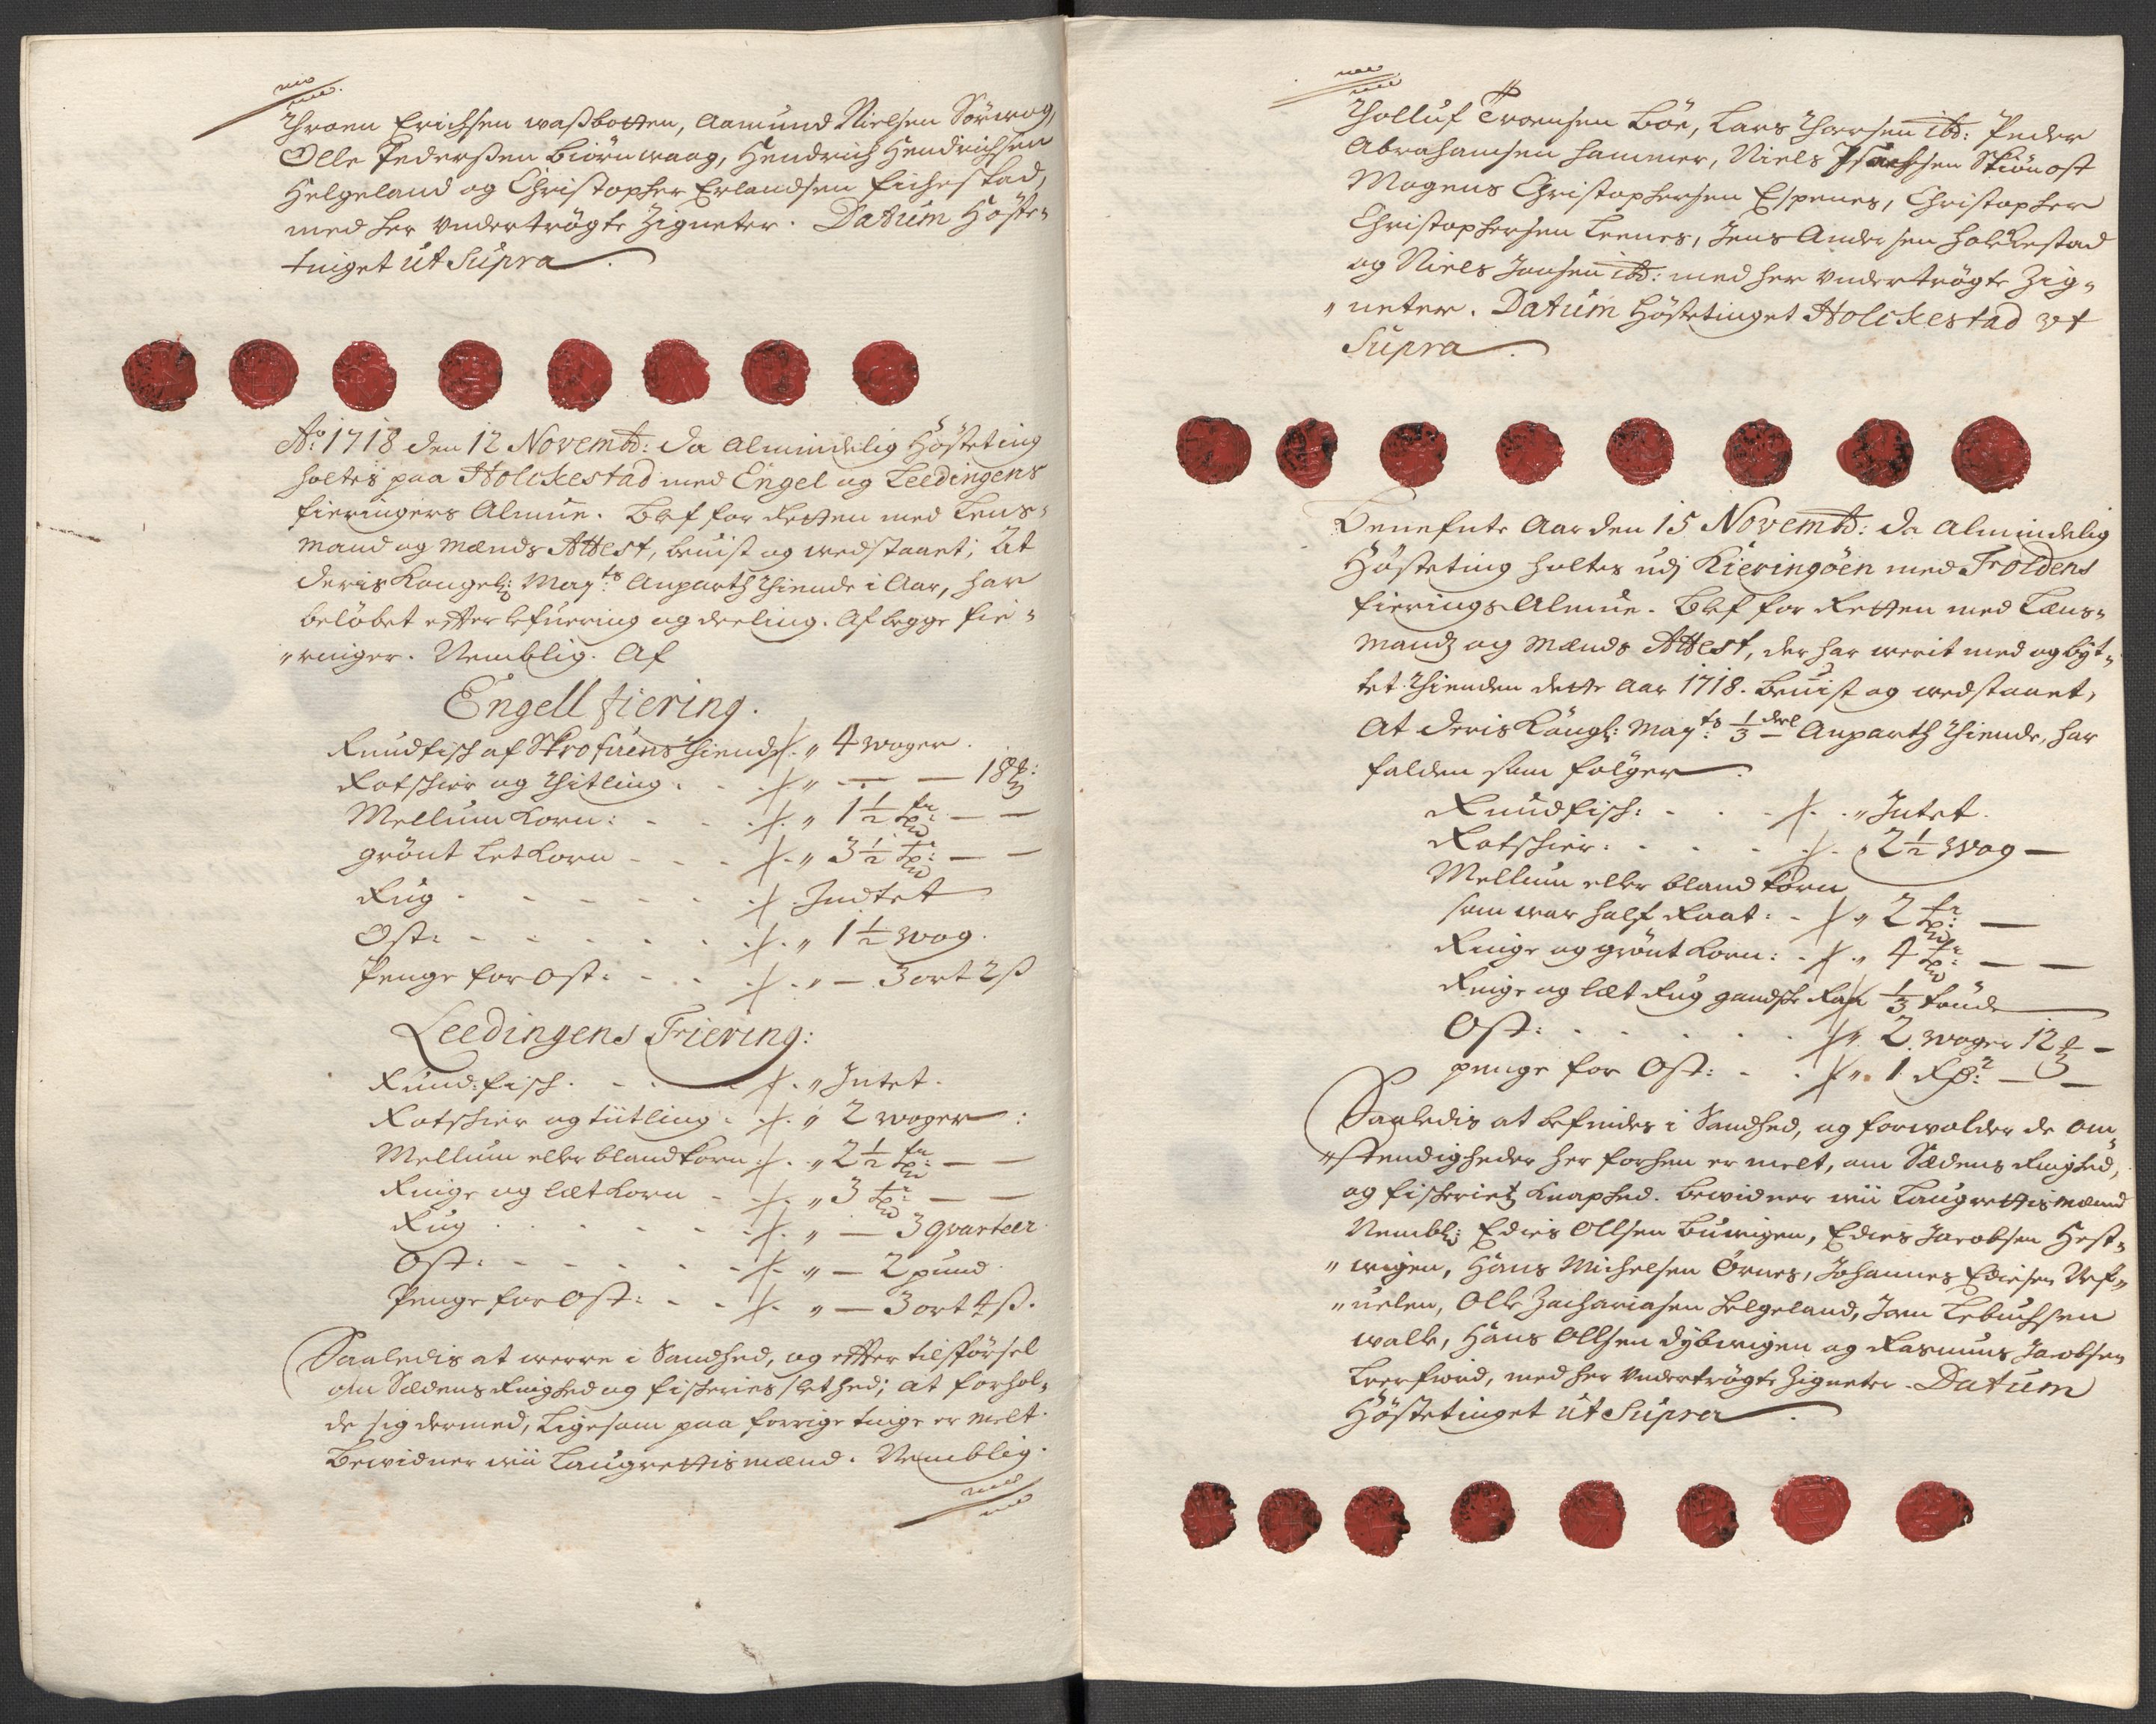 Throen Erichsen waßbotten, Aamund Nielsen Sörwog,
Olle Pederßen Biörnwaag, Hendrich Hendrichsen
Helgeland og Christopher Erlandsen Eichestad,
med her vndertrögte Zigneter. Datum Höste-
tinget ut Supra.
Ao: 1718 den 12 Novembr: da Almindelig Hösteting
holtes paa Holckestad med Engel og Leedingens
fieringers Almue. Blef for Retten med Lens-
mand og Mænds Attest, beuist og wedstaaet; At
deris Kongel: Mayts: Anparth Thiende i Aar, har
beløbet efter lefuering og deeling. Af begge fie-
"ringer. Nemblig. Af
Engell fiering.
Rundfisch af Skrofuens Thiende ⁒ " 4 woger.
Rotschier og Thitling . . ⁒ " — — 18 ℔:
Mellum Korn: - - ⁒ " 1½ tn: — —
grönt let Korn - - - ⁒ " 3½ tn: — —
Rug - - - - - ⁒ Indtet
Ost: - - - - - ⁒ " 1½ wog.
Penge for Ost: - - - ⁒ " — 3 ort 2 ß
Leedingens Fiering:
Rund:fisch. - - - ⁒ " Intet.
Rotschier og tiitling - ⁒ " 2 woger:
Mellum eller blandkorn ⁒ " 2½ tn: — —
Ringe og læt Korn - ⁒ " 3 tn: — —
Rug - - - - - ⁒ " — 3 qvarteer
Ost: - - - - - ⁒ " — 2 pund.
Penge for Ost: - - ⁒ " — 3 ort 4 ß.
Saaledis at werre i Sandhed, og efter tilspörsel
om Sædens Ringhed og fisheries slethed; at forhol-
de sig dermed, ligesom paa forrige tinge er melt.
Bewidner wii Laugrettismænd. Nemblig.
Tholluf Troensen Böe, Lars Thorsen ibd: Peder
Abrahamsen Hammer, Niels Isachsen Skiönost
Mogens Christophersen Espenes, Christopher
Christophersen Leenes, Jens Andersen Holckestad
og Niels Jonsen ibd: med her vndertrögte Zig-
"neter. Datum Höstetinget Holckestad vt
Supra.
Benefnte Aar den 15 Novembr: da Almindelig
Hösteting holtes udj Kieringöen med Foldens
fierings Almue. Blef for Retten med Læns-
mand og Mænds Attest, der har werit med og byt-
tet Thienden dette Aar 1718. beuist og wedstaaet,
At deris Kongl: Mayts: ⅓ deel Anparth Thiende, har
falden som følger.
Rundfisch: - - - ⁒ " Intet.
Rotschier: - - - - ⁒ 2½ Wog —
Mellum eller bland korn
som war half Raat: - ⁒ " 2 tn: —
Ringe og grönt Korn: - ⁒ " 4 tn: — —
Ringe og læt Rug gandske Raa ⁒ ⅓ tönde
Ost: - - - - - ⁒ " 2 woger 12 ℔ —
penge for Ost: - - ⁒ " 1 Rdr: — —
Saaledis at befindes i Sandhed, og forwolder de om-
"stendigheder her forhen er melt, om Sædens Ringhed,
og fisheriets Knaphed. Bewidner wii Laugrettismænd
Nembl: Edies Ollsen Buwigen, Edies Jacobsen Hest-
"wigen, Hans Michelsen Örnes, Johannes Ediesen Ref-
"uelen, Olle Zachariasen Helgeland, Jon Lebuchsen
walle, Hans Ollsen Dybwigen og Rasmus Jacobsen
Leerfiord, med her vndertrögte Zigneter. Datum
Höstetinget ut Supra.